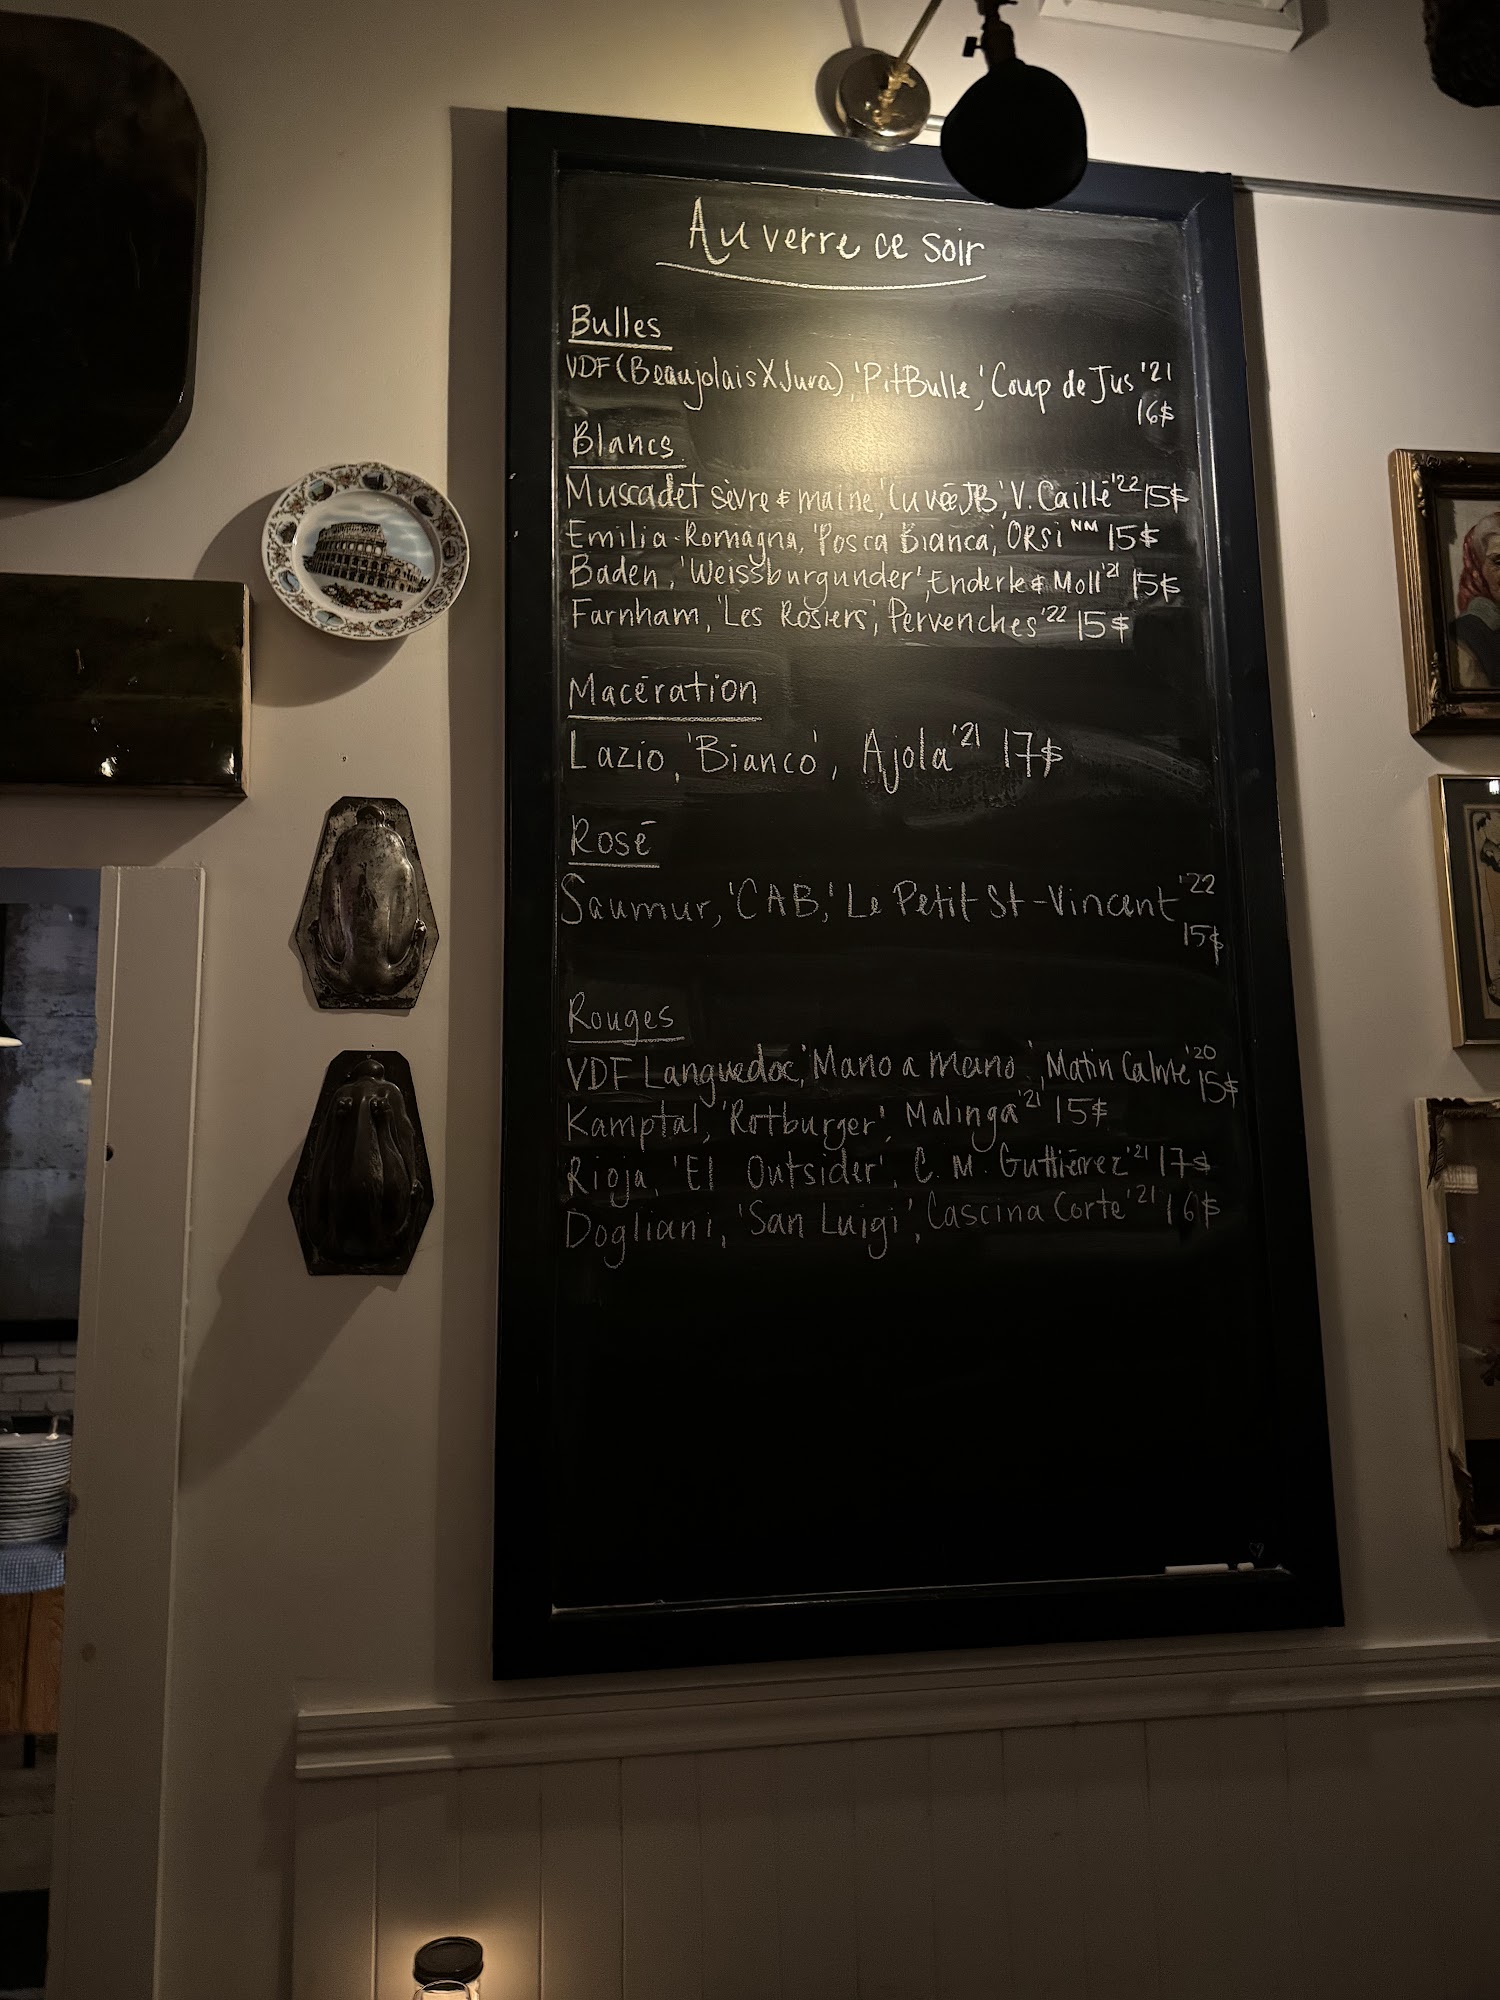 Au verre ce soir
Bulles
VDF (Beaujolais X Jura), 'PitBulle', Coup de Jus '21
16$
Blancs
Muscadet sèvre & maine, 'Cuvée JB', V. Caillé '22 15$
Emilia-Romagna, 'Posca Bianca', ORSi NM 15$
Baden, 'Weissburgunder', Enderle & Moll '21 15$
Farnham, 'Les Rosiers', Pervenches '22 15$
Macération
Lazio, 'Bianco', Ajola '21 17$
Rosé
Saumur, 'CAB', Le Petit St-Vincent '22
15$
Rouges
VDF Languedoc, 'Mano a mano', Matin Calme '20 15$
Kamptal, 'Rotburger', Malinga '21 15$
Rioja, 'El Outsider', C. M. Guttiérrez '21 17$
Dogliani, 'San Luigi', Cascina Corte '21 16$